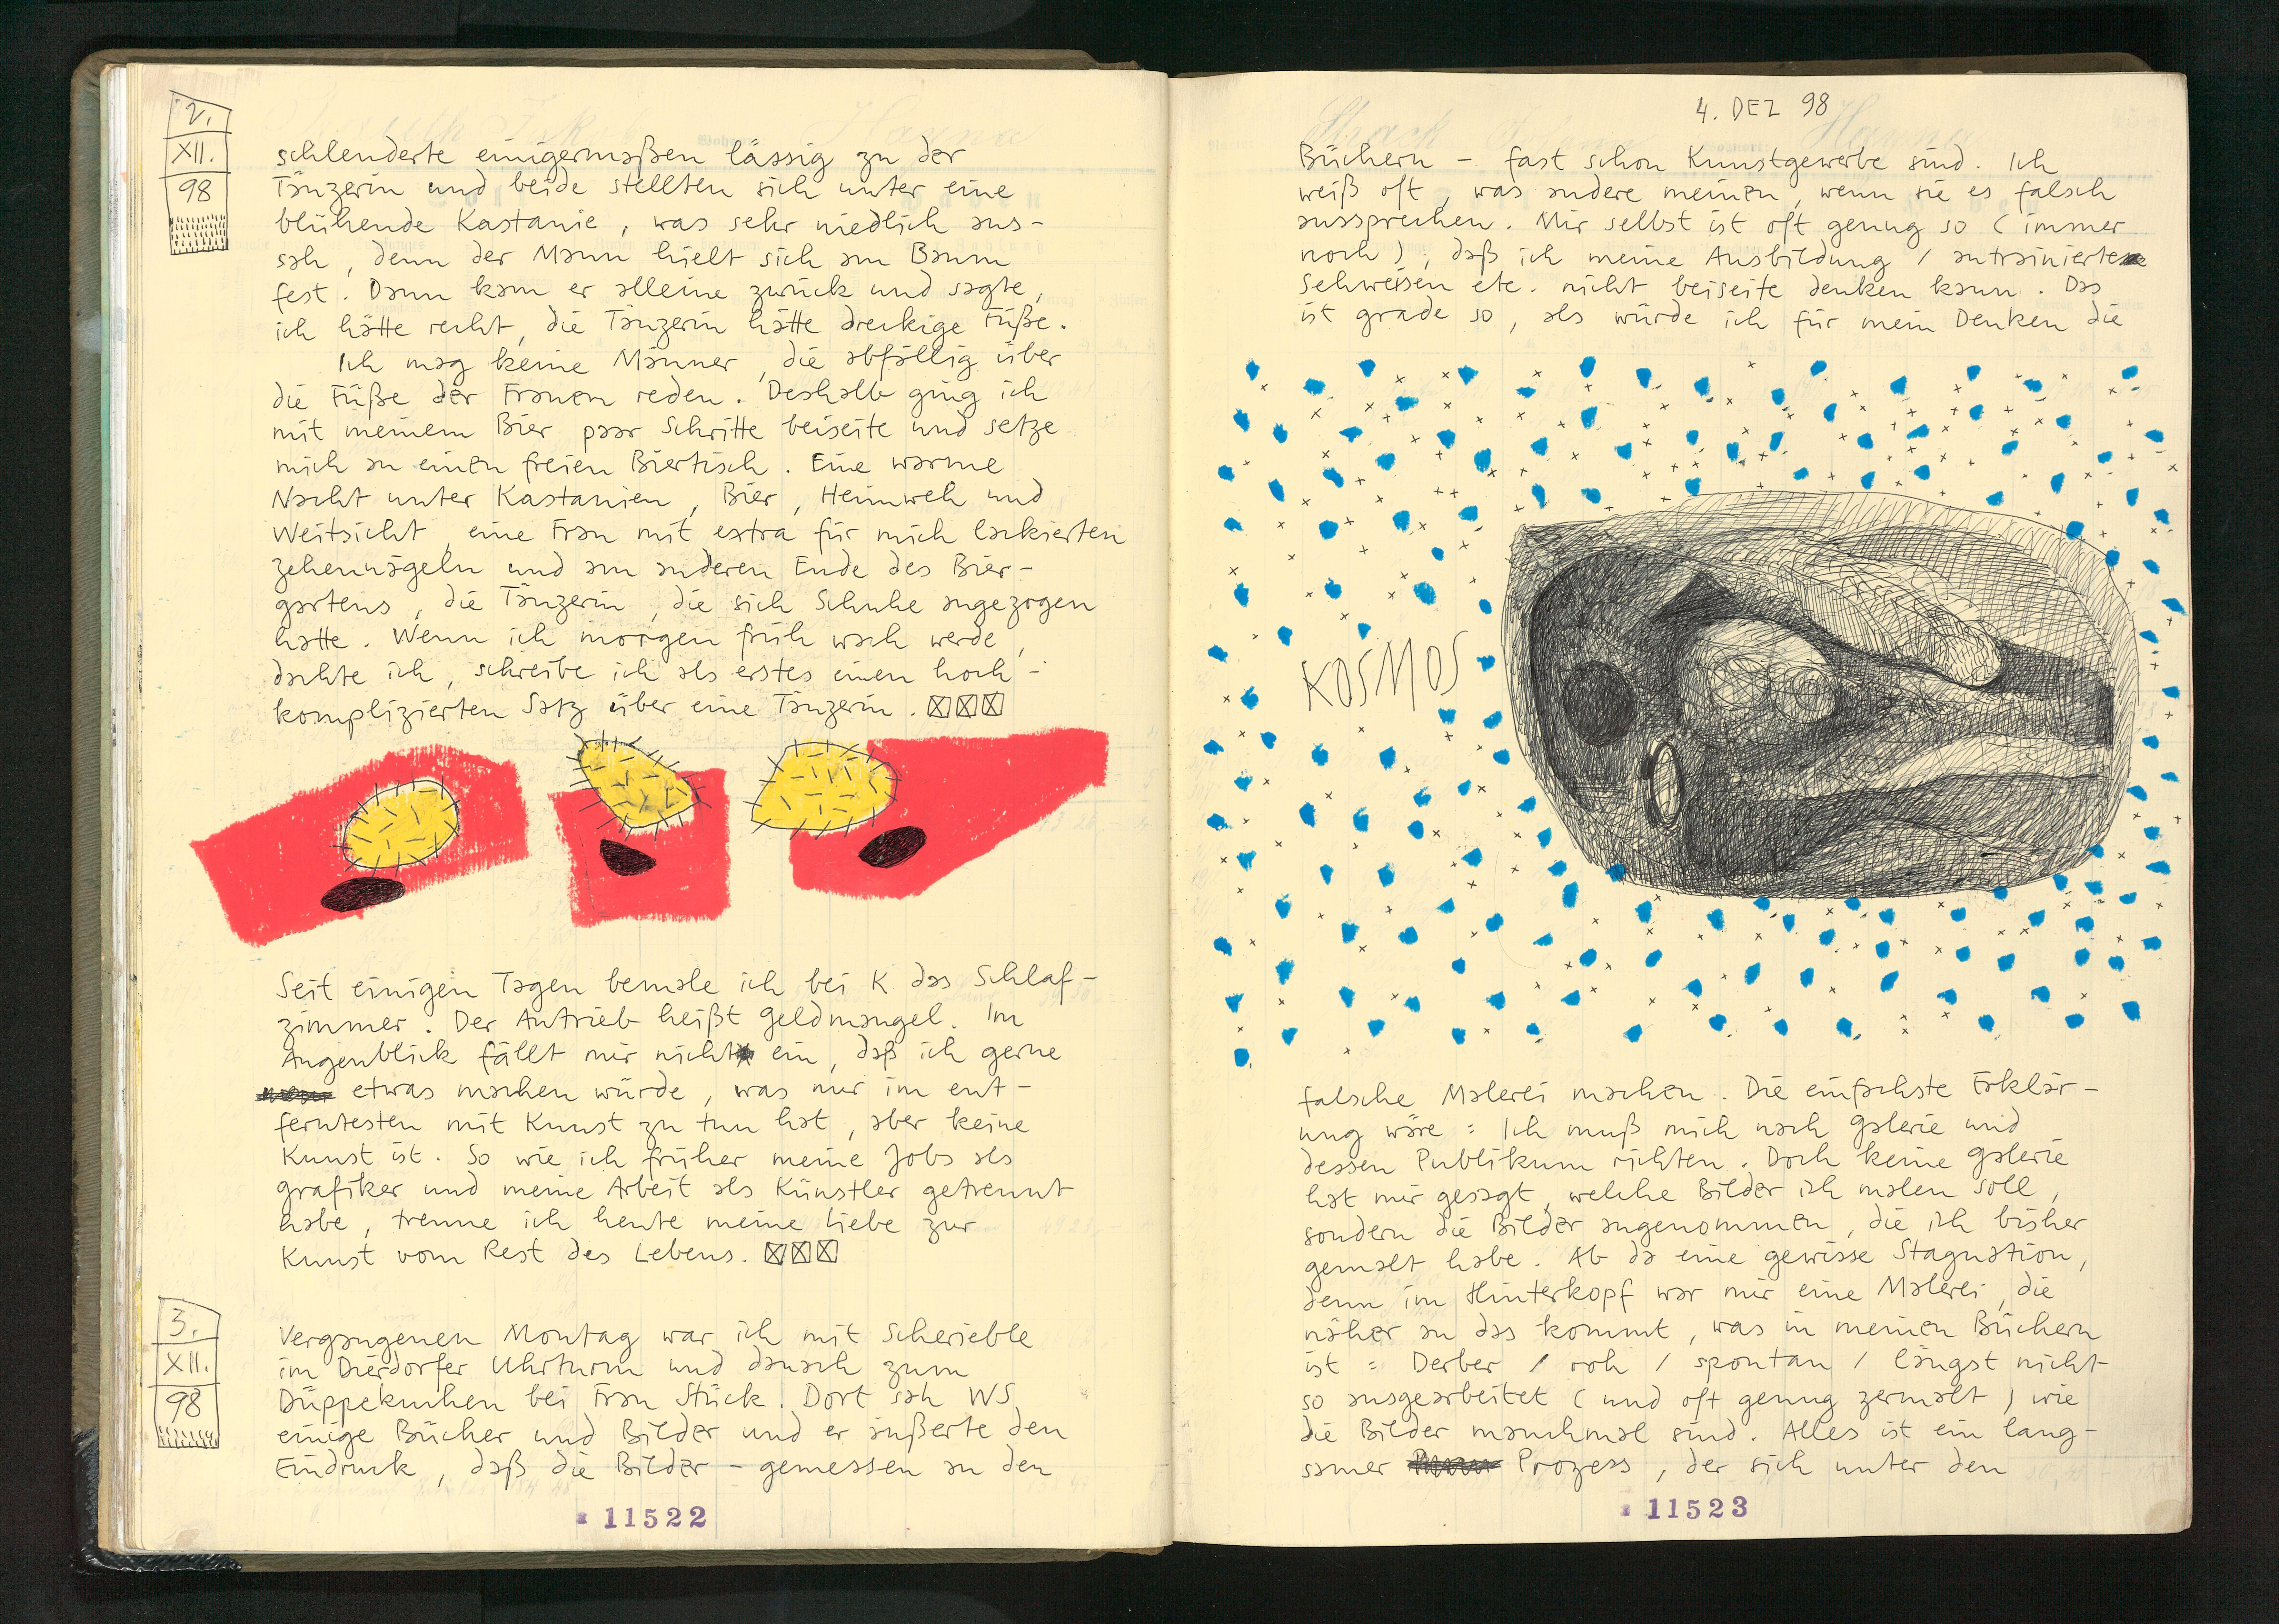 2.
XII.
98
schlenderte einigermaßen lässig zu der
Tänzerin und beide stellten sich unter eine
blühende Kastanie, was sehr niedlich aus-
sah, denn der Mann hielt sich am Baum
fest. Dann kam er alleine zurück und sagte,
ich hätte recht, die Tänzerin hätte dreckige Füße.
Ich mag keine Männer, die abfällig über
die Füße der Frauen reden. Deshalb ging ich
mit meinem Bier paar Schritte beiseite und setze
mich an einen freien Biertisch. Eine warme
Nacht unter Kastanien, Bier, Heimweh und
Weitsicht, eine Frau mit extra für mich lackierten
Zehennägeln und am anderen Ende des Bier-
gartens, die Tänzerin, die sich Schuhe angezogen
hatte. Wenn ich morgen früh wach werde,
dachte ich, schreibe ich als erstes einen hoch-
komplizierten Satz über eine Tänzerin.
Seit einigen Tagen bemale ich bei K das Schlaf-
zimmer. Der Antrieb heißt Geldmangel. Im
Augenblick fällt mir nicht ein, daß ich gerne
etwas machen würde, was nur im ent-
ferntesten mit Kunst zu tun hat, aber keine
Kunst ist. So wie ich früher meine Jobs als
Grafiker und meine Arbeit als Künstler getrennt
habe, trenne ich heute meine Liebe zur
Kunst vom Rest des Lebens.
3.
XII.
98
Vergangenen Montag war ich mit Scherieble
im Dierdorfer Uhrturm und danach zum
Düppekuchen bei Frau Stück. Dort sah WS
einige Bücher und Bilder und er äußerte den
Eindruck, daß die Bilder - gemessen an den
11522
4. DEZ 98
Büchern - fast schon Kunstgewerbe sind. Ich
weiß oft, was andere meinen, wenn sie es falsch
aussprechen. Mir selbst ist oft genug so (immer
noch), daß ich meine Ausbildung / antrainierte
Sehweisen etc. nicht beiseite denken kann. Das
ist grade so, als würde ich für mein Denken die
KOSMOS
falsche Malerei machen. Die einfachste Erklär-
ung wäre: Ich muß mich nach Galerie und
dessen Publikum richten. Doch keine Galerie
hat mir gesagt, welche Bilder ich malen soll,
sondern die Bilder angenommen, die ich bisher
gemalt habe. Ab da eine gewisse Stagnation,
denn im Hinterkopf war mir eine Malerei, die
näher an das kommt, was in meinen Büchern
ist: Derber / roh / spontan / längst nicht
so ausgearbeitet (und oft genug zermalt) wie
die Bilder manchmal sind. Alles ist ein lang-
samer Prozess, der sich unter den
11523